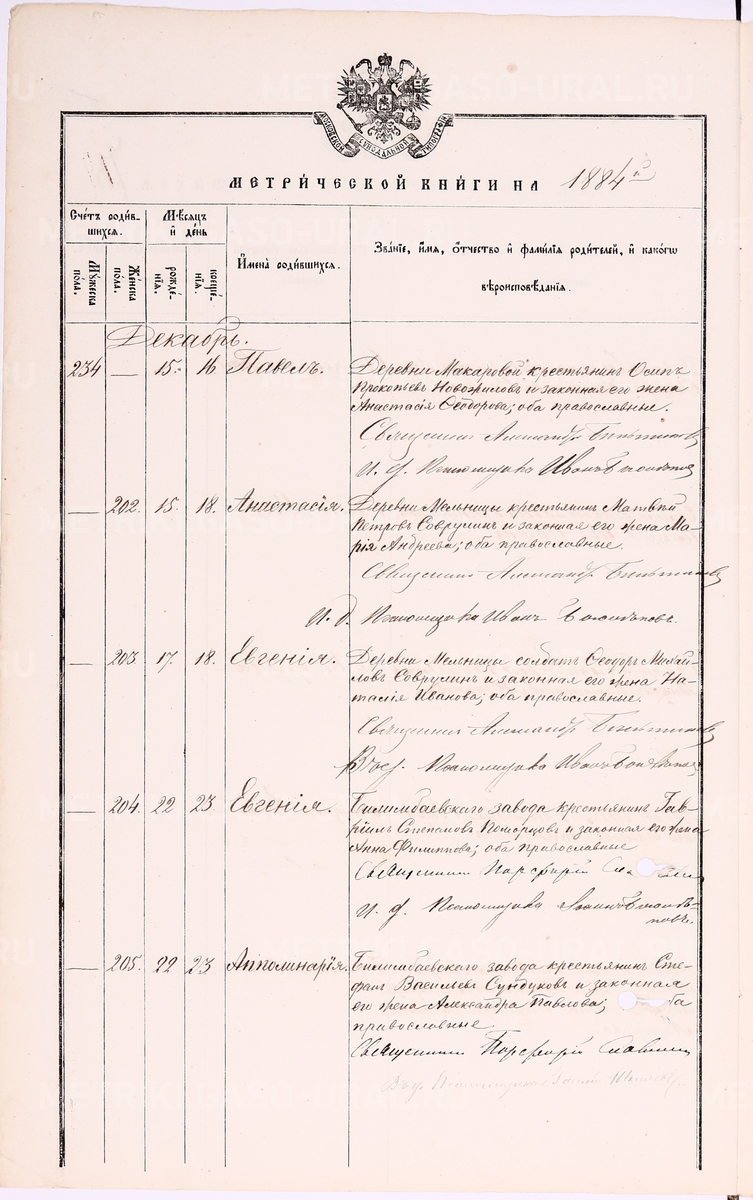 МОСКОВСКОЙ СУНОДАЛЬНОЙ ТИПОГРАФІИ
МЕТРИ́ЧЕСКОЙ КНИ́ГИ НА 1884й
Сче́тъ роди́в-
шихся.
Мѣсяцъ
и҆ де́нь
И҆мена̀ роди́вшихся.
Зва́ніе, и҆́мя, ѻ҆́тчество и҆ фами́лія роди́телей, и҆ како́гѡ
вѣроисповѣ́данія.
Му́жеска
по́ла.
Же́нска
по́ла.
рожде́-
нія.
креще́-
нія.
Декабрь.
234 — 15. 16 Павелъ. Деревни Макаровой крестьянинъ Осипъ
Прокопьевъ Новожиловъ и законная его жена
Анастасія Ѳеодорова; оба православные.
Священникъ Александръ
И. д. Псаломщика Иванъ
— 202. 15. 18. Анастасія. Деревни Мельницы крестьянинъ Матвѣй
Петровъ Соврулинъ и законная его жена Ма-
рія Андреева; оба православные.
Священникъ Александръ
И. д. Псаломщика Иванъ
— 203 17. 18. Евгенія. Деревни Мельницы солдатъ Ѳеодоръ Михай-
ловъ Соврулинъ и законная его жена На-
талія Иванова; оба православные.
Священникъ Александръ
Псаломщика Иванъ
— 204. 22 23 Евгенія. Билимбаевскаго завода крестьянинъ Гав-
ріилъ Степановъ Поморцовъ и законная его жена
Анна Филиппова; оба православные
Священникъ Порфирій
И. д. Псаломщика
— 205. 22 23 Апполинарія. Билимбаевскаго завода крестьянинъ Сте-
фанъ Васильевъ Сундуковъ и законная
его жена Александра Павлова; оба
православные.
Священникъ Порфирій Славнинъ